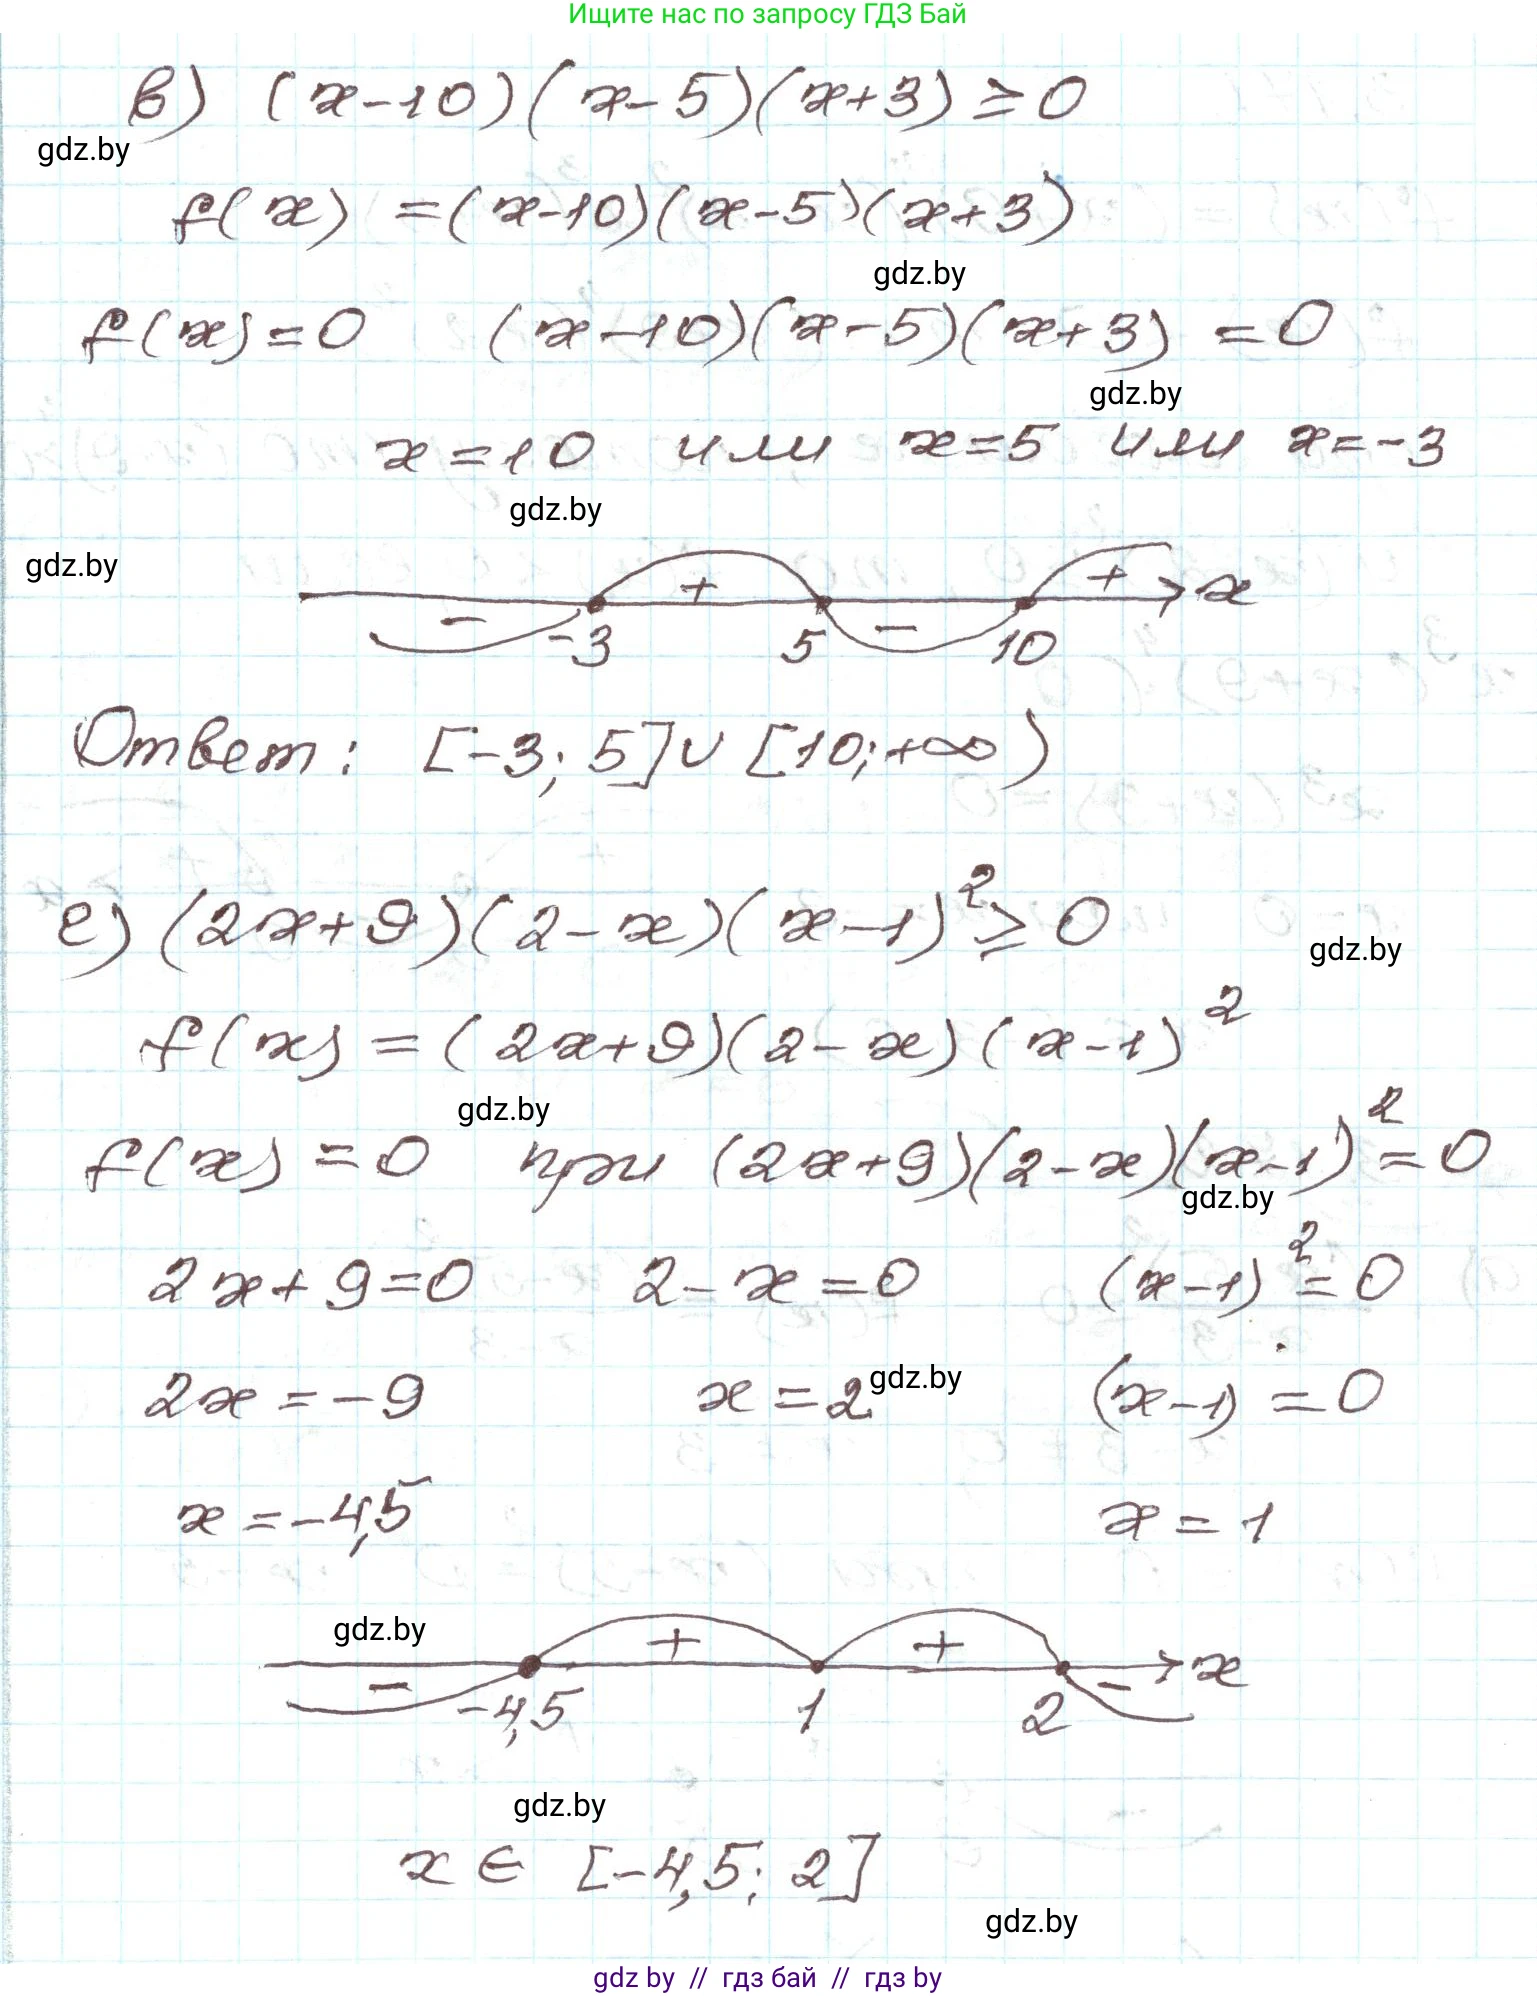 Ищите нас по запросу ГДЗ Бай
в) (x-10)(x-5)(x+3) ≥ 0
gdz.by
f(x) = (x-10)(x-5)(x+3)
gdz.by
f(x)=0 (x-10)(x-5)(x+3) = 0
gdz.by
x=10 или x=5 или x=-3
gdz.by
gdz.by
+ + x
- -3 5 - 10
Ответ: [-3; 5]∪[10;+∞)
е) (2x+9)(2-x)(x-1)² ≥ 0
gdz.by
f(x) = (2x+9)(2-x)(x-1)²
gdz.by
f(x)=0 при (2x+9)(2-x)(x-1)²=0
gdz.by
2x+9=0 2-x=0 (x-1)²=0
2x=-9 x=2 (x-1)=0
gdz.by
x=-4,5 x=1
gdz.by
+ + x
- -4,5 1 2 -
gdz.by
x ∈ [-4,5; 2]
gdz.by
gdz by // гдз бай // гдз by